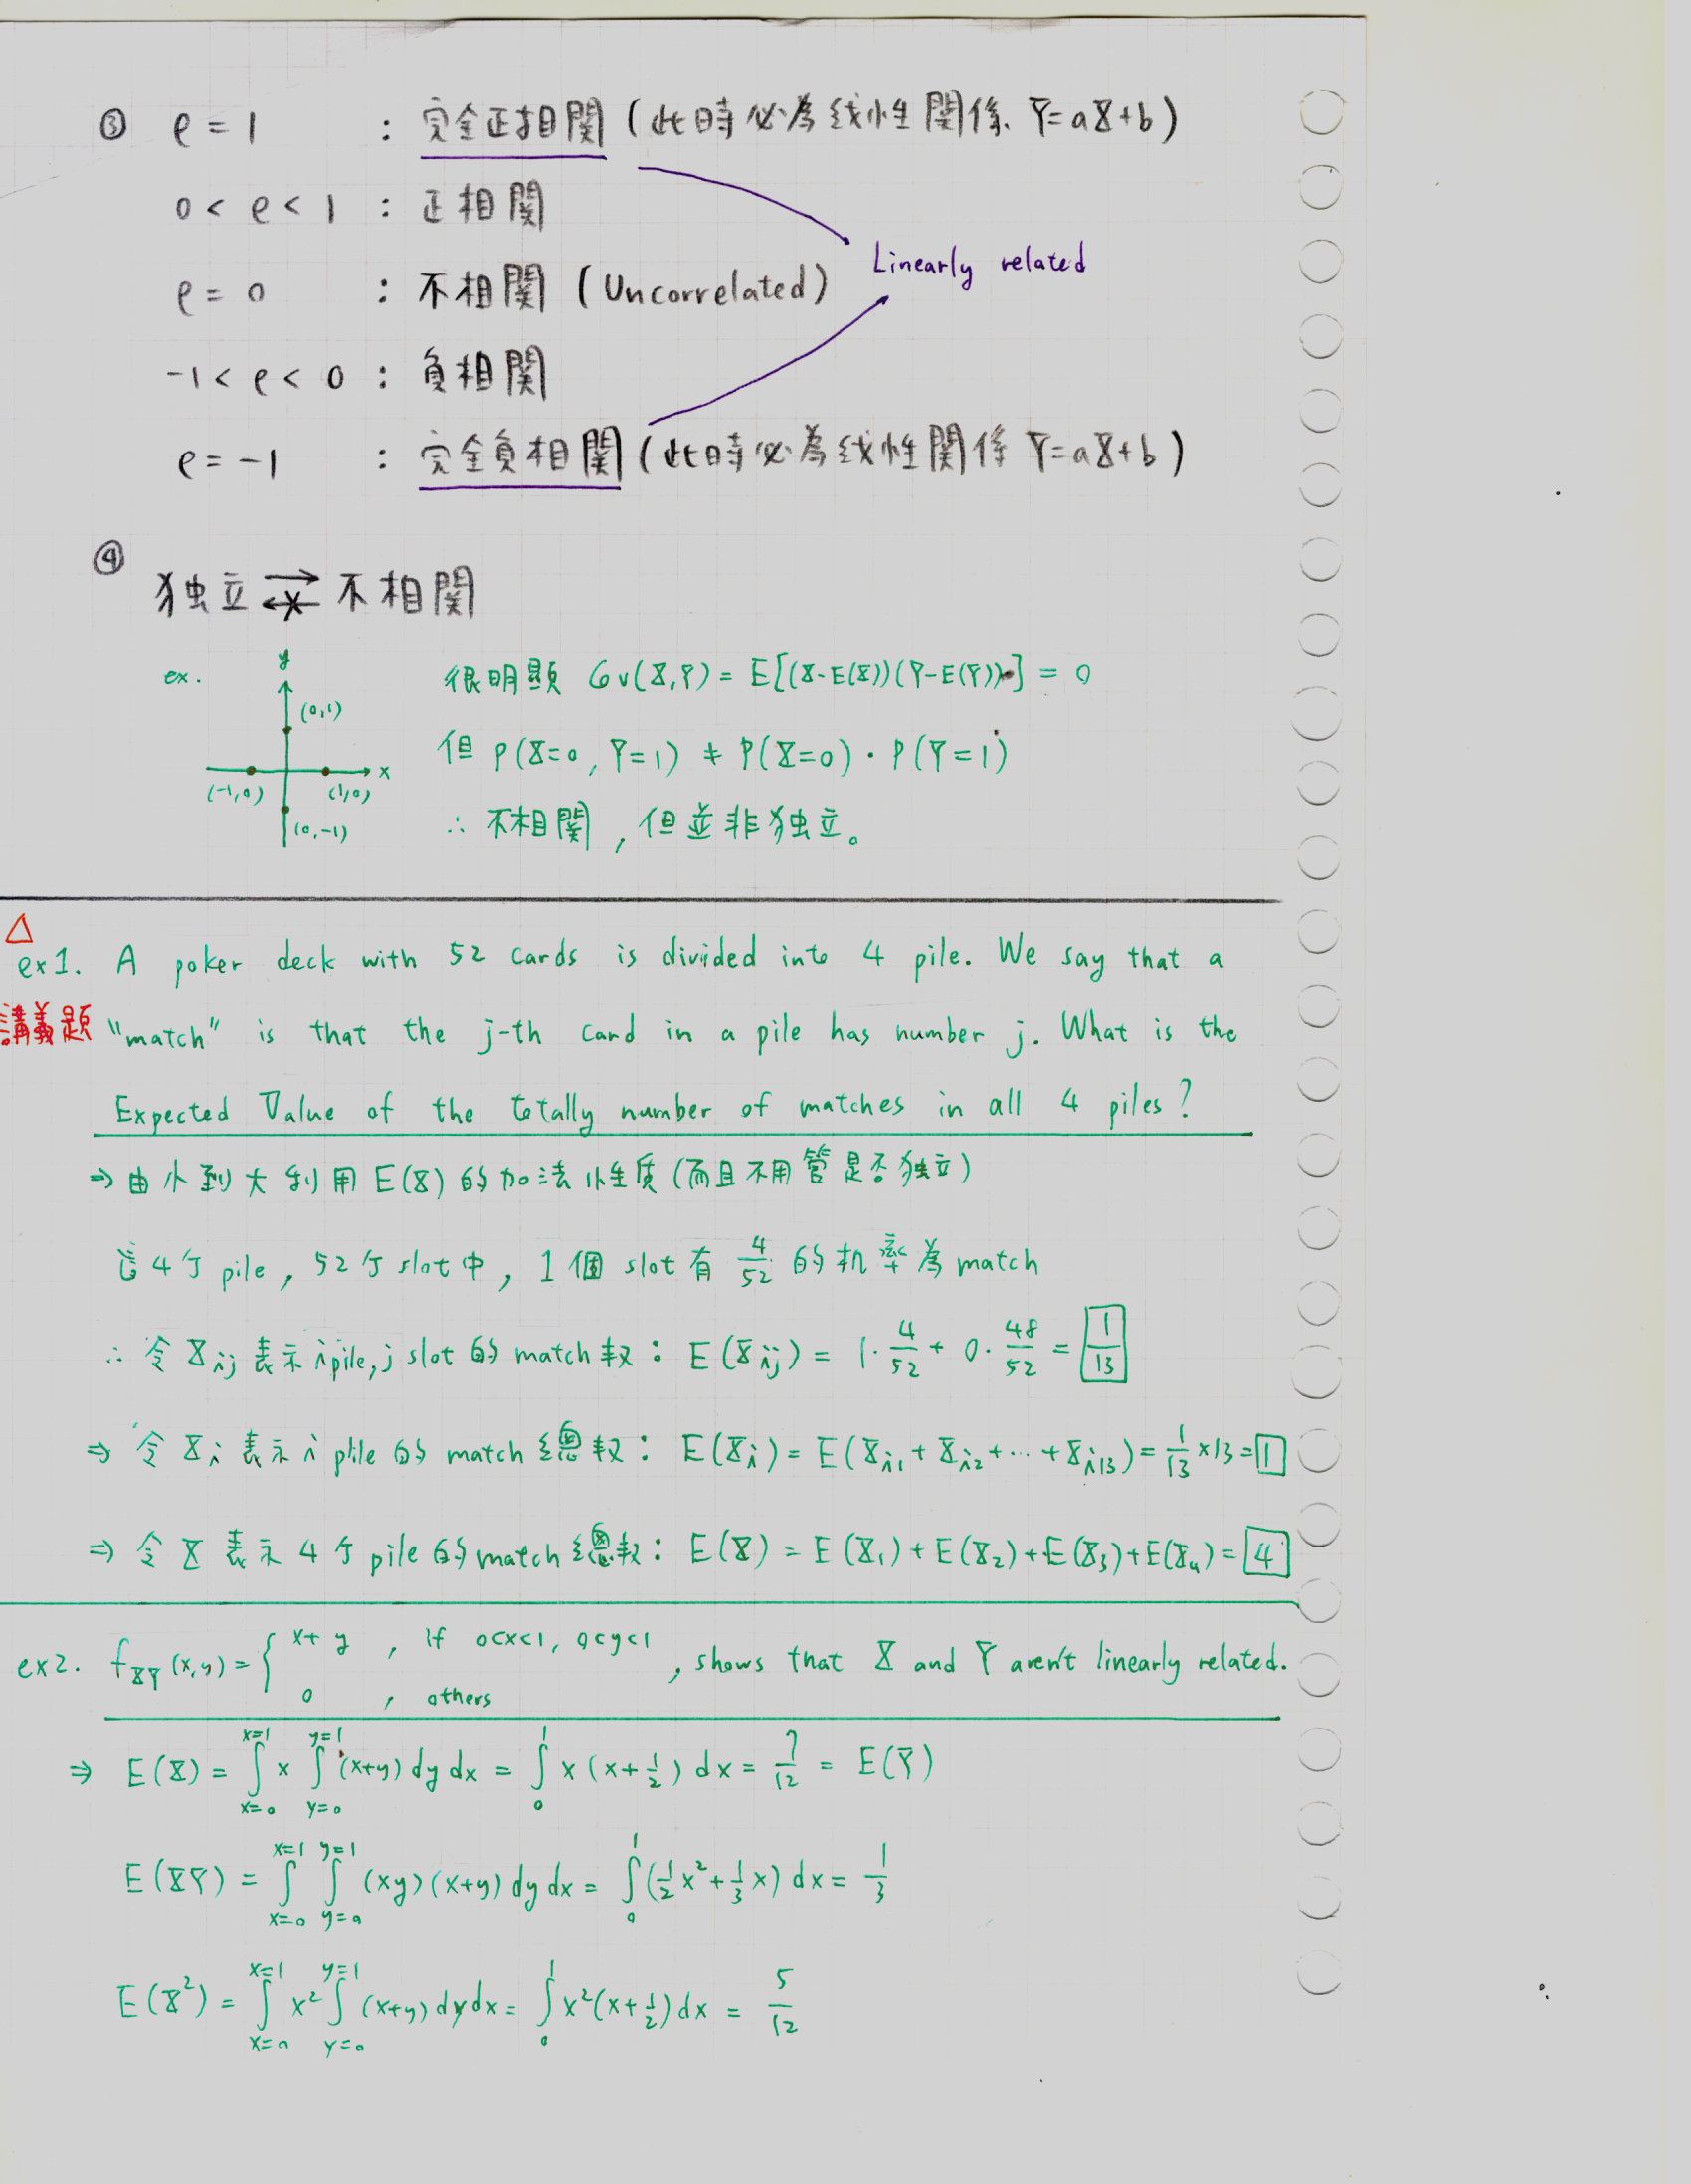 ③ ρ = 1 : 完全正相関 (此時必為线性関係. Y=aX+b)
0 < ρ < 1 : 正相関
Linearly related
ρ = 0 : 不相関 (Uncorrelated)
-1 < ρ < 0 : 負相関
ρ = -1 : 完全負相関 (此時必為线性関係 Y=aX+b)
④
独立 ⇄ 不相関
ex. y (0,1) x (-1,0) (1,0) (0,-1)
很明顕 Cov(X,Y) = E[(X-E(X))(Y-E(Y))] = 0
但 P(X=0, Y=1) ≠ P(X=0)・P(Y=1)
∴ 不相関, 但並非独立。
△
ex1. A poker deck with 52 cards is divided into 4 pile. We say that a
講義題 "match" is that the j-th card in a pile has number j. What is the
Expected Value of the totally number of matches in all 4 piles?
⇒ 由小到大利用 E(X) 的加法性质 (而且不用管是否独立)
這4个 pile, 52个 slot中, 1個 slot有 4/52 的机率為 match
∴ 令 Xij 表示 i pile, j slot 的 match 数: E(Xij) = 1・4/52 + 0・48/52 = 1/13
⇒ 令 Xi 表示 i pile 的 match 総数: E(Xi) = E(Xi1 + Xi2 + ⋯ + Xi13) = 1/13 ×13 = 1
⇒ 令 X 表示 4个 pile 的 match 総数: E(X) = E(X1) + E(X2) + E(X3) + E(X4) = 4
ex2. fXY(x,y) = { x+y , if 0<x<1, 0<y<1 0 , others , shows that X and Y aren't linearly related.
⇒ E(X) = ∫x=0^x=1 x ∫y=0^y=1 (x+y) dy dx = ∫0^1 x(x+1/2) dx = 7/12 = E(Y)
E(XY) = ∫x=0^x=1 ∫y=0^y=1 (xy)(x+y) dy dx = ∫0^1 (1/2 x² + 1/3 x) dx = 1/3
E(X²) = ∫x=0^x=1 x² ∫y=0^y=1 (x+y) dy dx = ∫0^1 x²(x+1/2) dx = 5/12